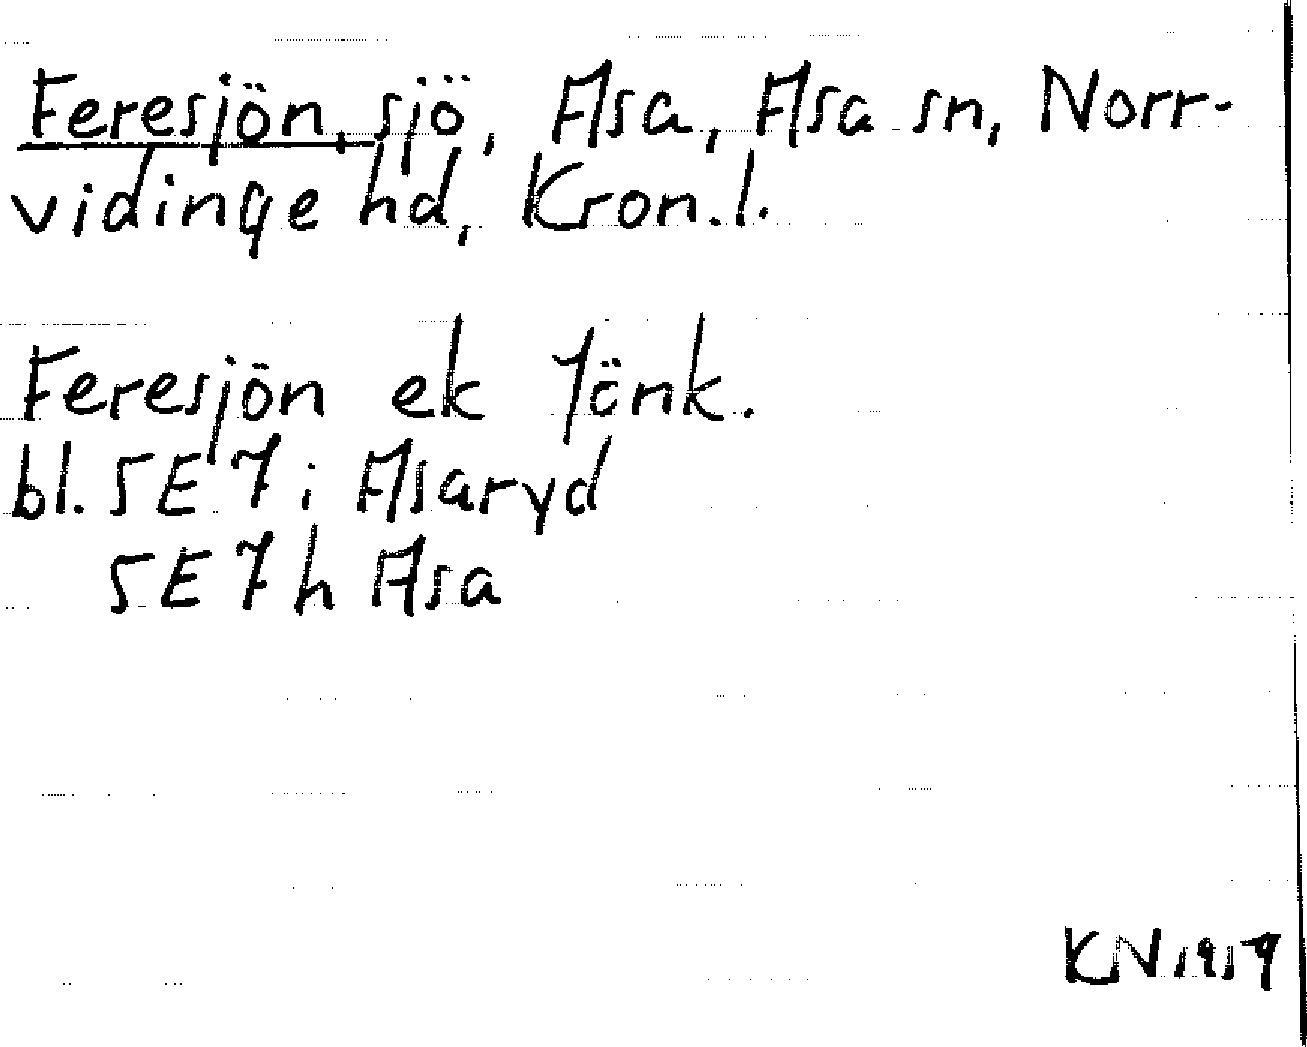 Feresjön, sjö, Asa, Asa sn, Norr-
vidinge hd, Kron.l.
Feresjön ek Jönk.
bl. 5E7i Asaryd
5E7h Asa
KN 1919